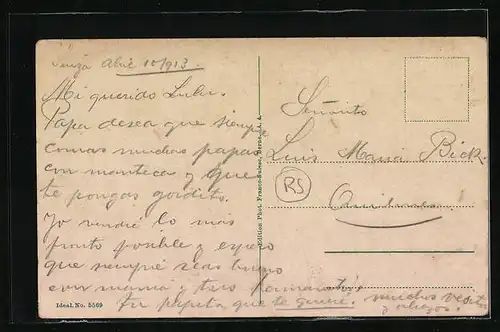 Abril 10/913.
Mi querido Lulu.
Papa desea que siempre
comas muchas papas
con manteca y que
te pongas gordito.
Yo vendré lo más
pronto posible y espero
que siempre seas bueno
con mamá y tus hermanitos
Tu papito que te quiere. muchos besos
y abrazos.
Edition Phot. Franco-Suisse, Berne.
Señorito
Luis Maria Bick.
RS
Quilmes
Ideal. No. 5569